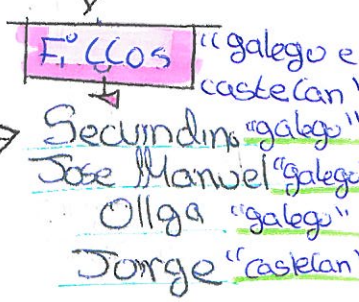 Fillos "galego e
castelan"
Secundino "galego"
Jose Manuel "galego
Ollga "galego"
Jorge "castelan